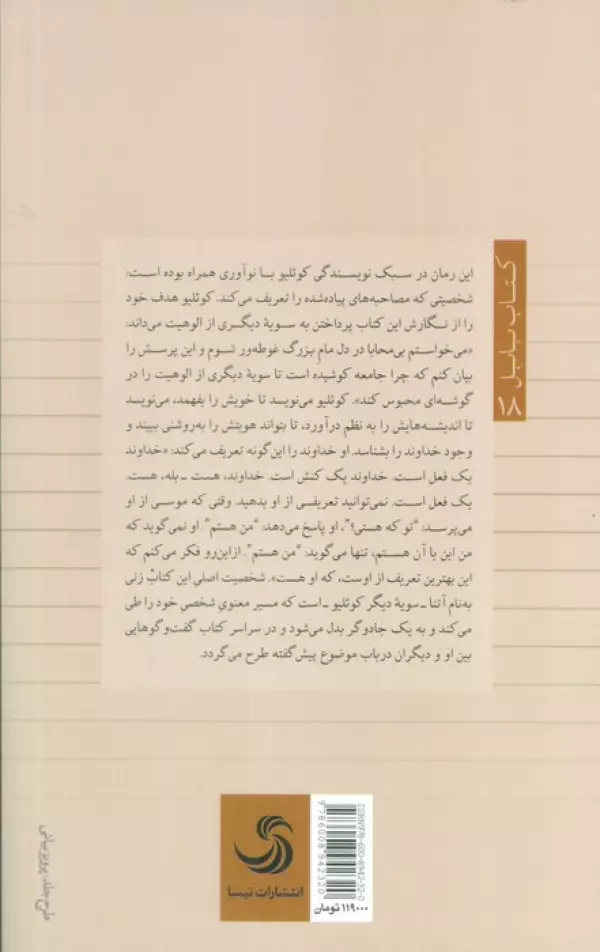 این رمان در سبک نویسندگی کوئلیو با نوآوری همراه بوده است:
شخصیتی که مصاحبه‌های پیاده‌شده را تعریف می‌کند. کوئلیو هدف خود
را از نگارش این کتاب پرداختن به سویهٔ دیگری از الوهیت می‌داند:
«می‌خواستم بی‌محابا در دل مامِ بزرگ غوطه‌ور شوم و این پرسش را
بیان کنم که چرا جامعه کوشیده است تا سویهٔ دیگری از الوهیت را در
گوشه‌ای محبوس کند». کوئلیو می‌نویسد تا خویش را بفهمد، می‌نویسد
تا اندیشه‌هایش را به نظم درآورد، تا بتواند هویتش را به‌روشنی ببیند و
وجود خداوند را بشناسد. او خداوند را این‌گونه تعریف می‌کند: «خداوند
یک فعل است. خداوند یک کنش است. خداوند، هست ـ بله، هست.
یک فعل است. نمی‌توانید تعریفی از او بدهید. وقتی که موسی از او
می‌پرسد: "تو که هستی؟"، او پاسخ می‌دهد: "من هستم". او نمی‌گوید که
من این یا آن هستم، تنها می‌گوید: "من هستم". ازاین‌رو فکر می‌کنم که
این بهترین تعریف از اوست، که او هست». شخصیت اصلیِ این کتابْ زنی
به‌نام آتنا ـ سویهٔ دیگر کوئلیو ـ است که مسیر معنویِ شخصیِ خود را طی
می‌کند و به یک جادوگر بدل می‌شود و در سراسر کتاب گفت‌وگوهایی
بین او و دیگران درباب موضوع پیش‌گفته طرح می‌گردد.
کتاب بابل
۱۸
انتشارات تیسا
ISBN:978-600-8942-32-0
9786008942320
۱۱۹۰۰۰ تومان
طرح جلد: پرویز بیانی